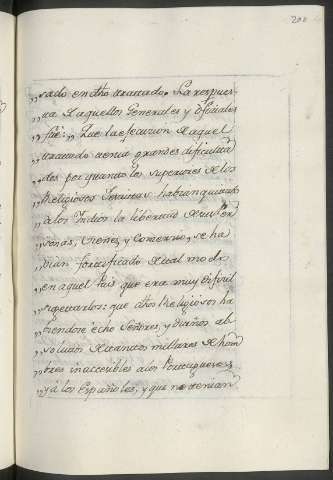 200
„rado en dho tratado. La respues
„ta d aquellos Generales y oficiales
„fué: „ Que la execucion d aquel
„tratado tenia grandes dificulta
„des por quanto los superiores d los
„Religiosos Jesuitas habian quitado
„a los Indios la libertad d sus Per
„sonas, vienes, y Comercio, se ha
„bian fortificado d tal modo
„en aquel Pais que era muy dificil
„sugetarlos: que dhos Religiosos ha
„viendose echo Señores, y dueños ab
„solutos d tantos millares d hom
„bres inaccesibles a los Portugueses,
„y a los Españoles, y que no tenian